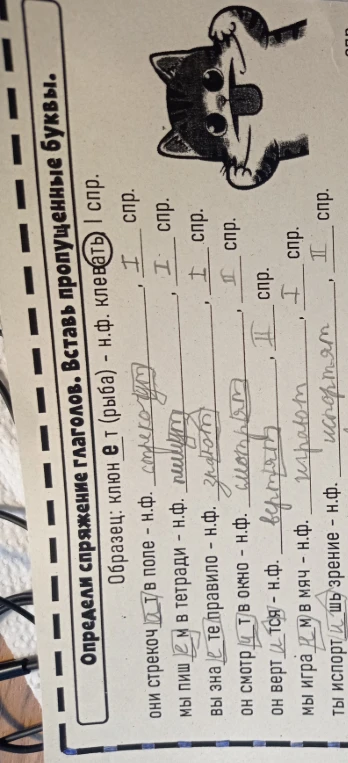 Определи спряжение глаголов. Вставь пропущенные буквы.
Образец: клюн е т (рыба) - н.ф. клевать, I спр.
они стрекоч ат в поле - н.ф. , I спр.
мы пиш е м в тетради - н.ф. пишут , I спр.
вы зна е те правило - н.ф. знают , I спр.
он смотр и т в окно - н.ф. смотрят , II спр.
он верт и тся - н.ф. вертят , II спр.
мы игра е м в мяч - н.ф. играют , I спр.
ты испорт и шь зрение - н.ф. испортят , II спр.